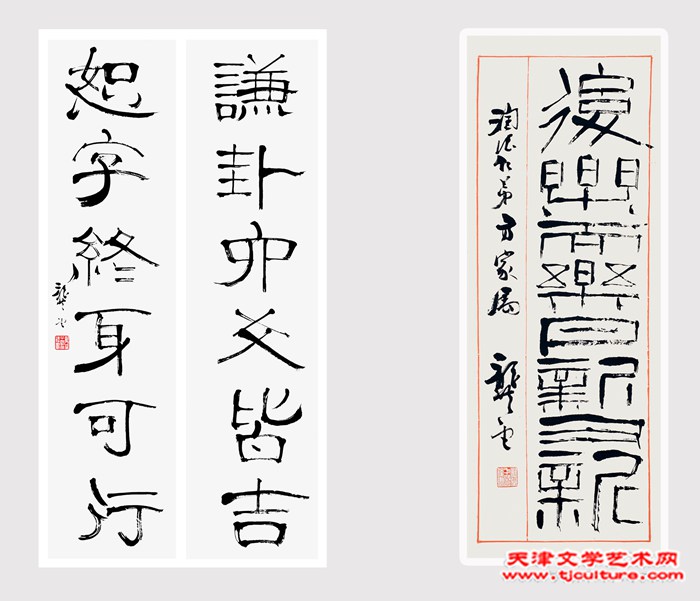 謙卦六爻皆吉
恕字終身可行
龔望
復興樂日新又新
方家属
龔望
天津文学艺术网
www.tjculture.com